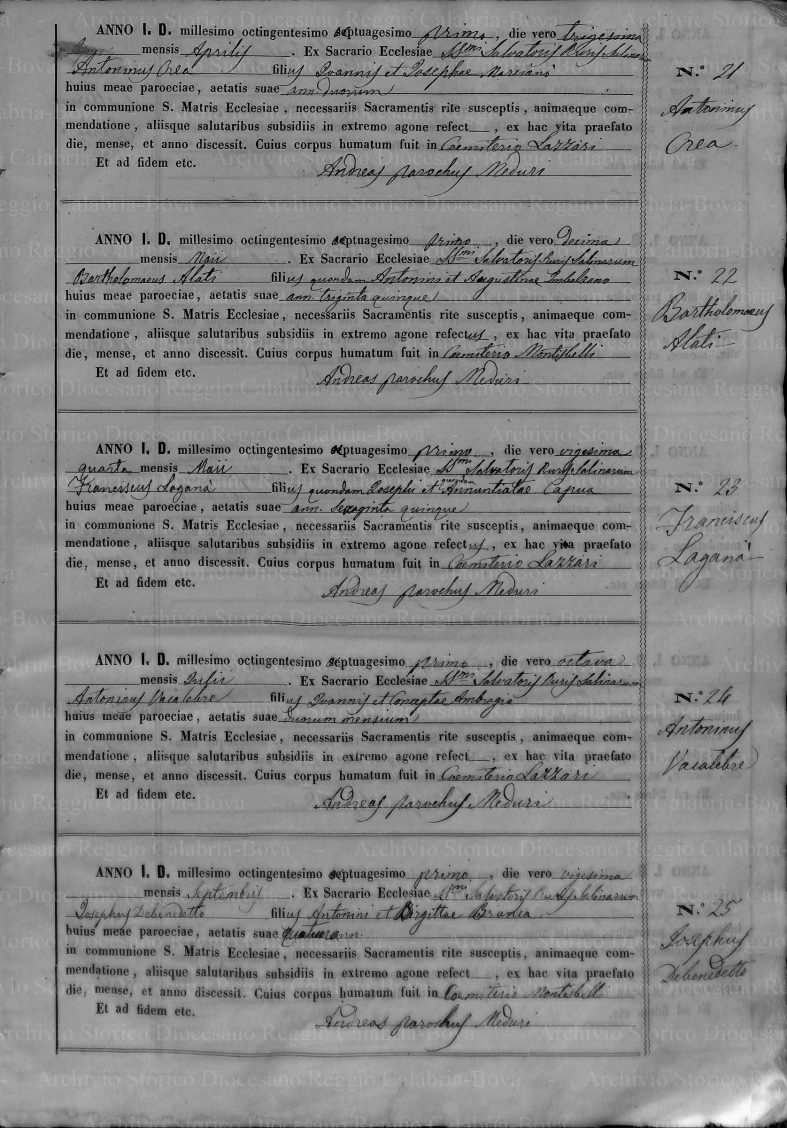 ANNO I. D. millesimo octingentesimo septuagesimo primo, die vero trigesima
mensis Aprilis. Ex Sacrario Ecclesiae SSmi Salvatoris Ruris Salinarum
Antoninus Crea filius Joannis et Josephae Marcianò
huius meae paroeciae, aetatis suae ann. duorum
in communione S. Matris Ecclesiae, necessariis Sacramentis rite susceptis, animaeque com-
mendatione, aliisque salutaribus subsidiis in extremo agone refect, ex hac vita praefato
die, mense, et anno discessit. Cuius corpus humatum fuit in Coemiterio Lazzari
Et ad fidem etc.
Andreas parochus Meduri
N.° 21
Antoninus
Crea
ANNO I. D. millesimo octingentesimo septuagesimo primo, die vero decima
mensis Maii. Ex Sacrario Ecclesiae SSmi Salvatoris Ruris Salinarum
Bartholomaeus Alati filius quondam Antonini et Augustinae
huius meae paroeciae, aetatis suae ann. triginta quinque
in communione S. Matris Ecclesiae, necessariis Sacramentis rite susceptis, animaeque com-
mendatione, aliisque salutaribus subsidiis in extremo agone refectus, ex hac vita praefato
die, mense, et anno discessit. Cuius corpus humatum fuit in Coemiterio Montisbelli
Et ad fidem etc.
Andreas parochus Meduri
N.° 22
Bartholomaeus
Alati
ANNO I. D. millesimo octingentesimo septuagesimo primo, die vero vigesima
quarta mensis Maii. Ex Sacrario Ecclesiae SSmi Salvatoris Ruris Salinarum
Franciscus Laganà filius quondam Josephi et quondam Annuntiatae Capua
huius meae paroeciae, aetatis suae ann. sexaginta quinque
in communione S. Matris Ecclesiae, necessariis Sacramentis rite susceptis, animaeque com-
mendatione, aliisque salutaribus subsidiis in extremo agone refectus, ex hac vita praefato
die, mense, et anno discessit. Cuius corpus humatum fuit in Coemiterio Lazzari
Et ad fidem etc.
Andreas parochus Meduri
N.° 23
Franciscus
Laganà
ANNO I. D. millesimo octingentesimo septuagesimo primo, die vero octava
mensis Julii. Ex Sacrario Ecclesiae SSmi Salvatoris Ruris Salinarum
Antoninus Vacalebre filius Joannis et Conceptae Ambrogio
huius meae paroeciae, aetatis suae duorum mensium
in communione S. Matris Ecclesiae, necessariis Sacramentis rite susceptis, animaeque com-
mendatione, aliisque salutaribus subsidiis in extremo agone refect, ex hac vita praefato
die, mense, et anno discessit. Cuius corpus humatum fuit in Coemiterio Lazzari
Et ad fidem etc.
Andreas parochus Meduri
N.° 24
Antoninus
Vacalebre
ANNO I. D. millesimo octingentesimo septuagesimo primo, die vero vigesima
mensis Septembris. Ex Sacrario Ecclesiae SSmi Salvatoris Ruris Salinarum
Josephus Debenedetto filius Antonini et Birgittae
huius meae paroeciae, aetatis suae quatuor ann.
in communione S. Matris Ecclesiae, necessariis Sacramentis rite susceptis, animaeque com-
mendatione, aliisque salutaribus subsidiis in extremo agone refect, ex hac vita praefato
die, mense, et anno discessit. Cuius corpus humatum fuit in Coemiterio Montisbelli
Et ad fidem etc.
Andreas parochus Meduri
N.° 25
Josephus
Debenedetto
Archivio Storico Diocesano Reggio Calabria-Bova